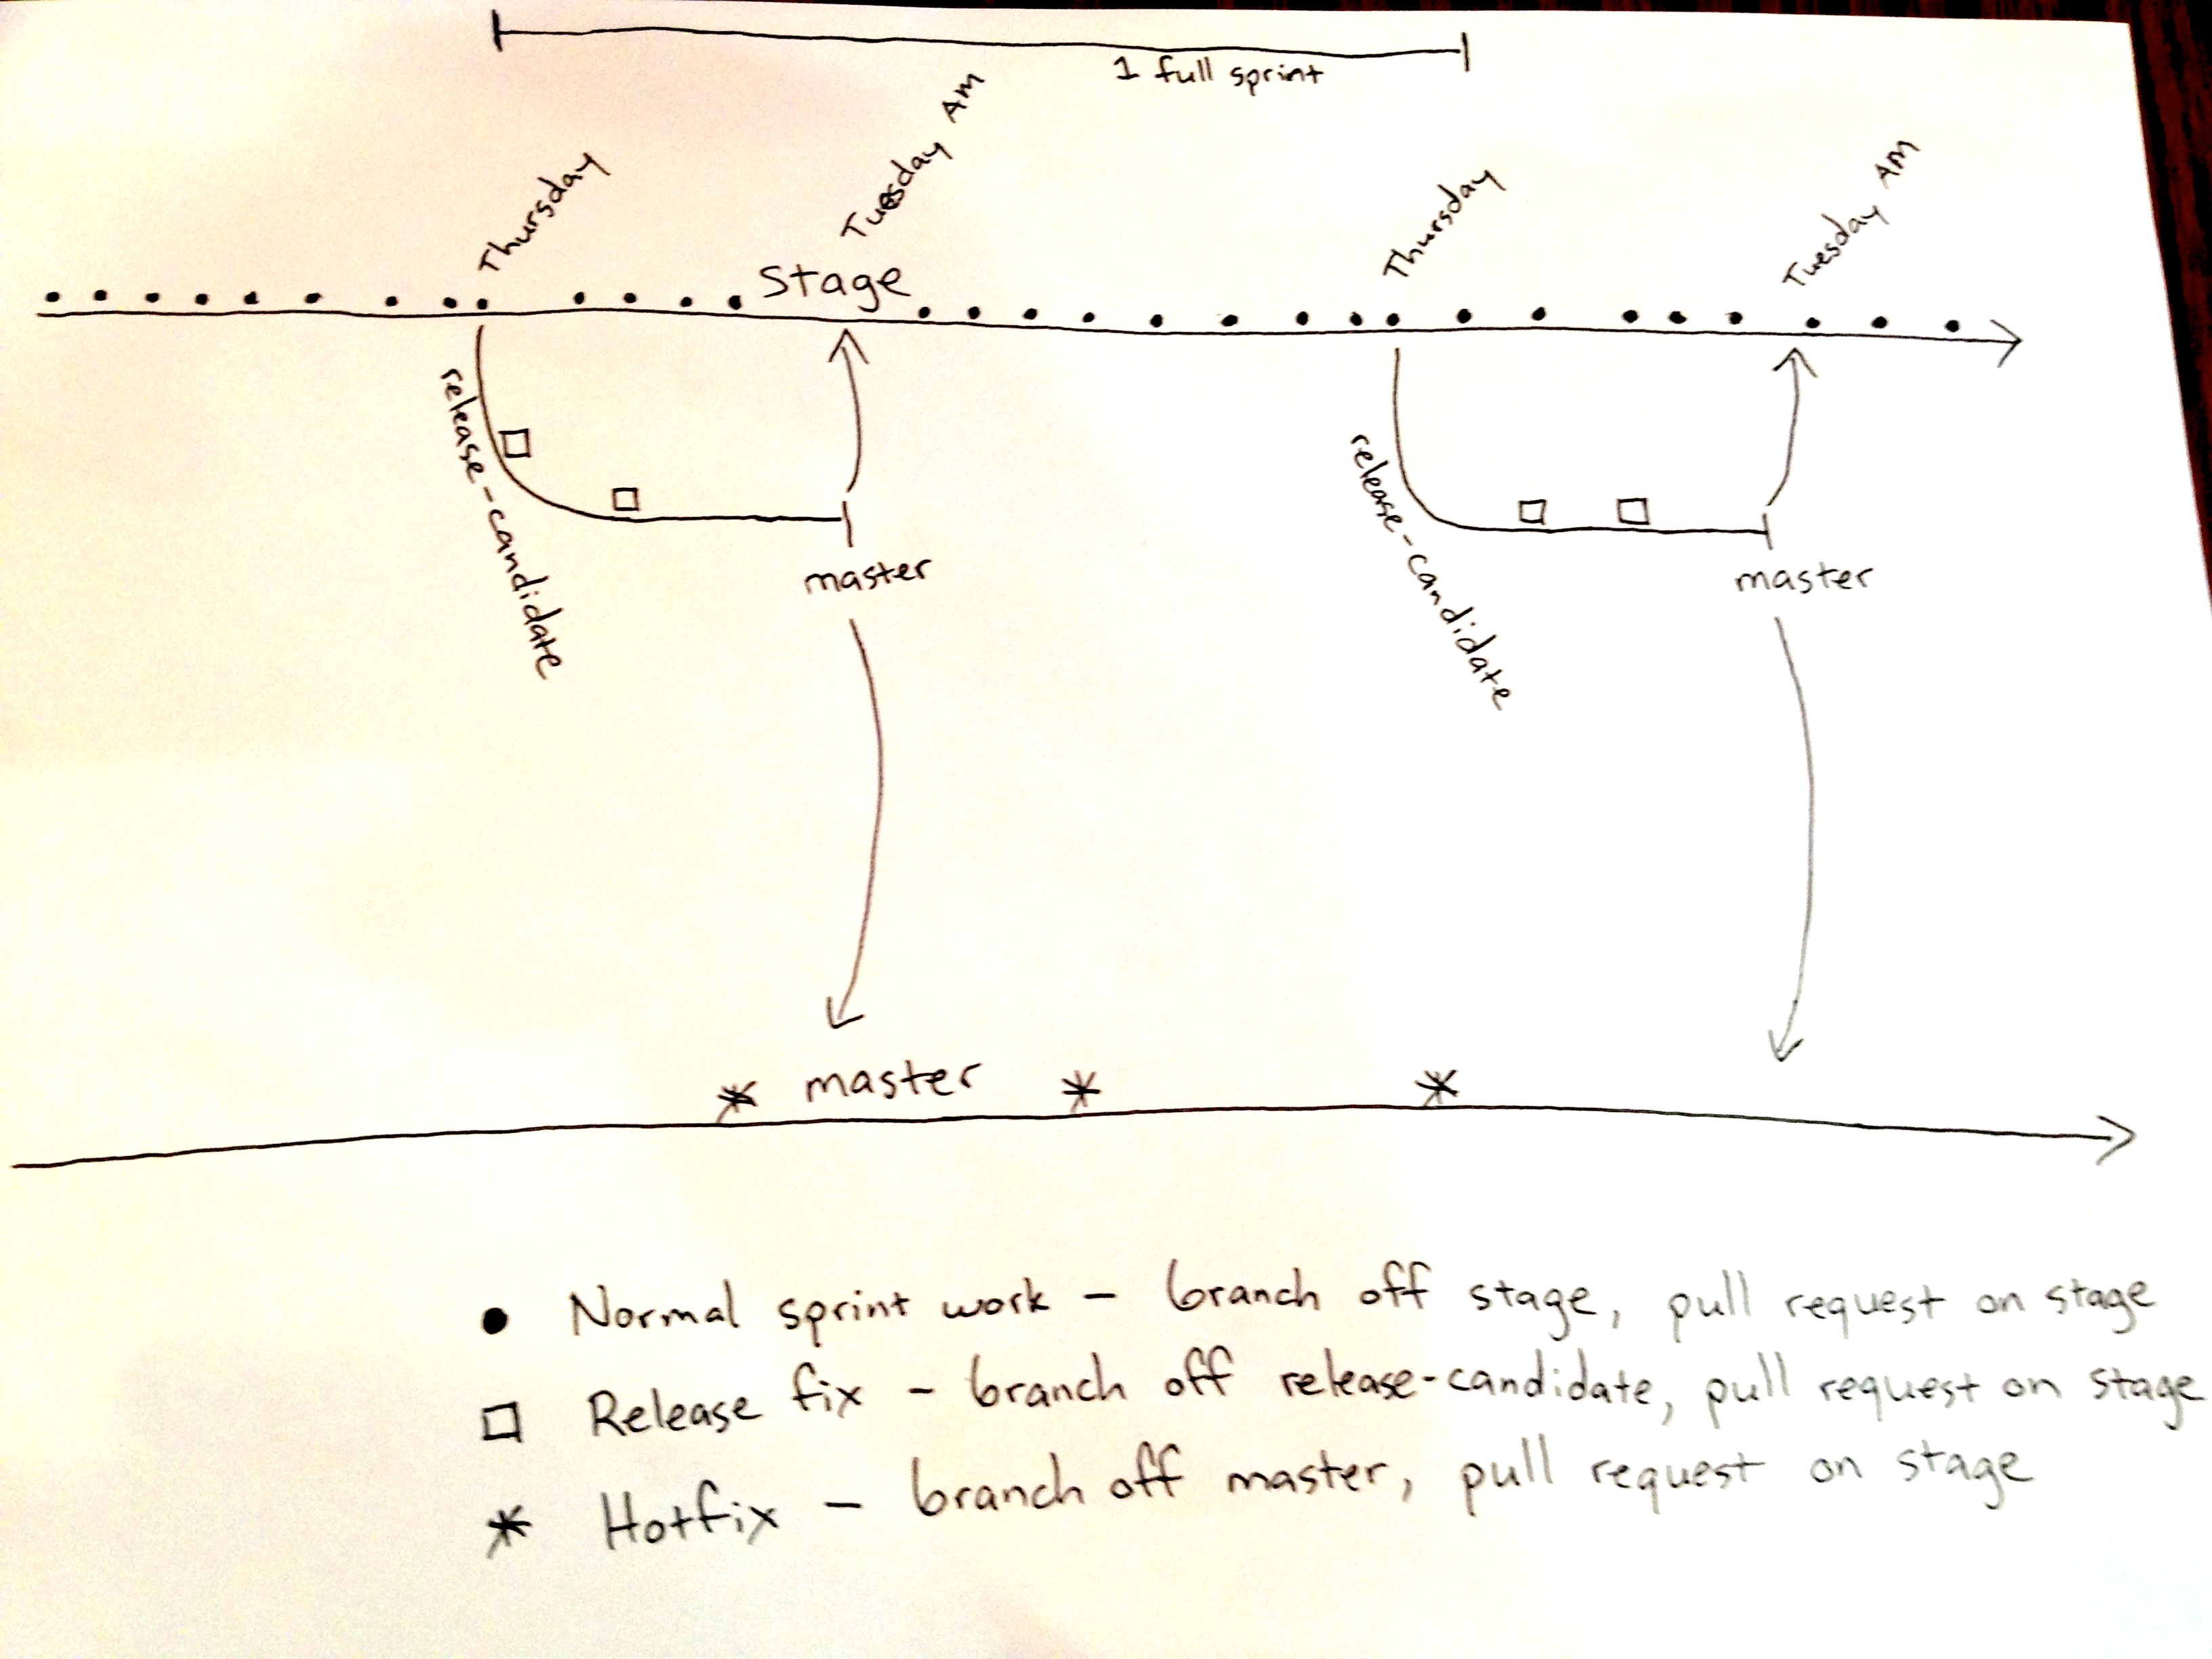 1 full sprint
Thursday
Tuesday AM
Thursday
Tuesday AM
Stage
release-candidate
release-candidate
master
master
master
Normal sprint work - branch off stage, pull request on stage
Release fix - branch off release-candidate, pull request on stage
Hotfix - branch off master, pull request on stage